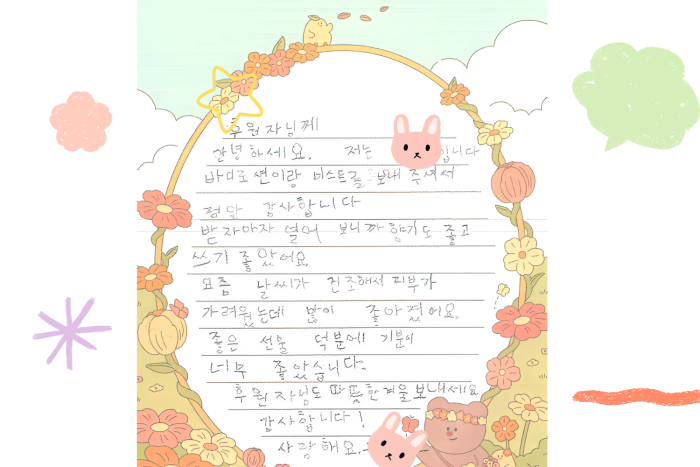 후원자님께
안녕하세요. 저는 입니다
바디로션이랑 미스트를 보내 주셔서
정말 감사합니다
받자마자 열어 보니까 향기도 좋고
쓰기 좋았어요
요즘 날씨가 건조해서 피부가
가려웠는데 많이 좋아졌어요.
좋은 선물 덕분에 기분이
너무 좋았습니다.
후원자님도 따뜻한겨울 보내세요
감사합니다!
사랑해요.